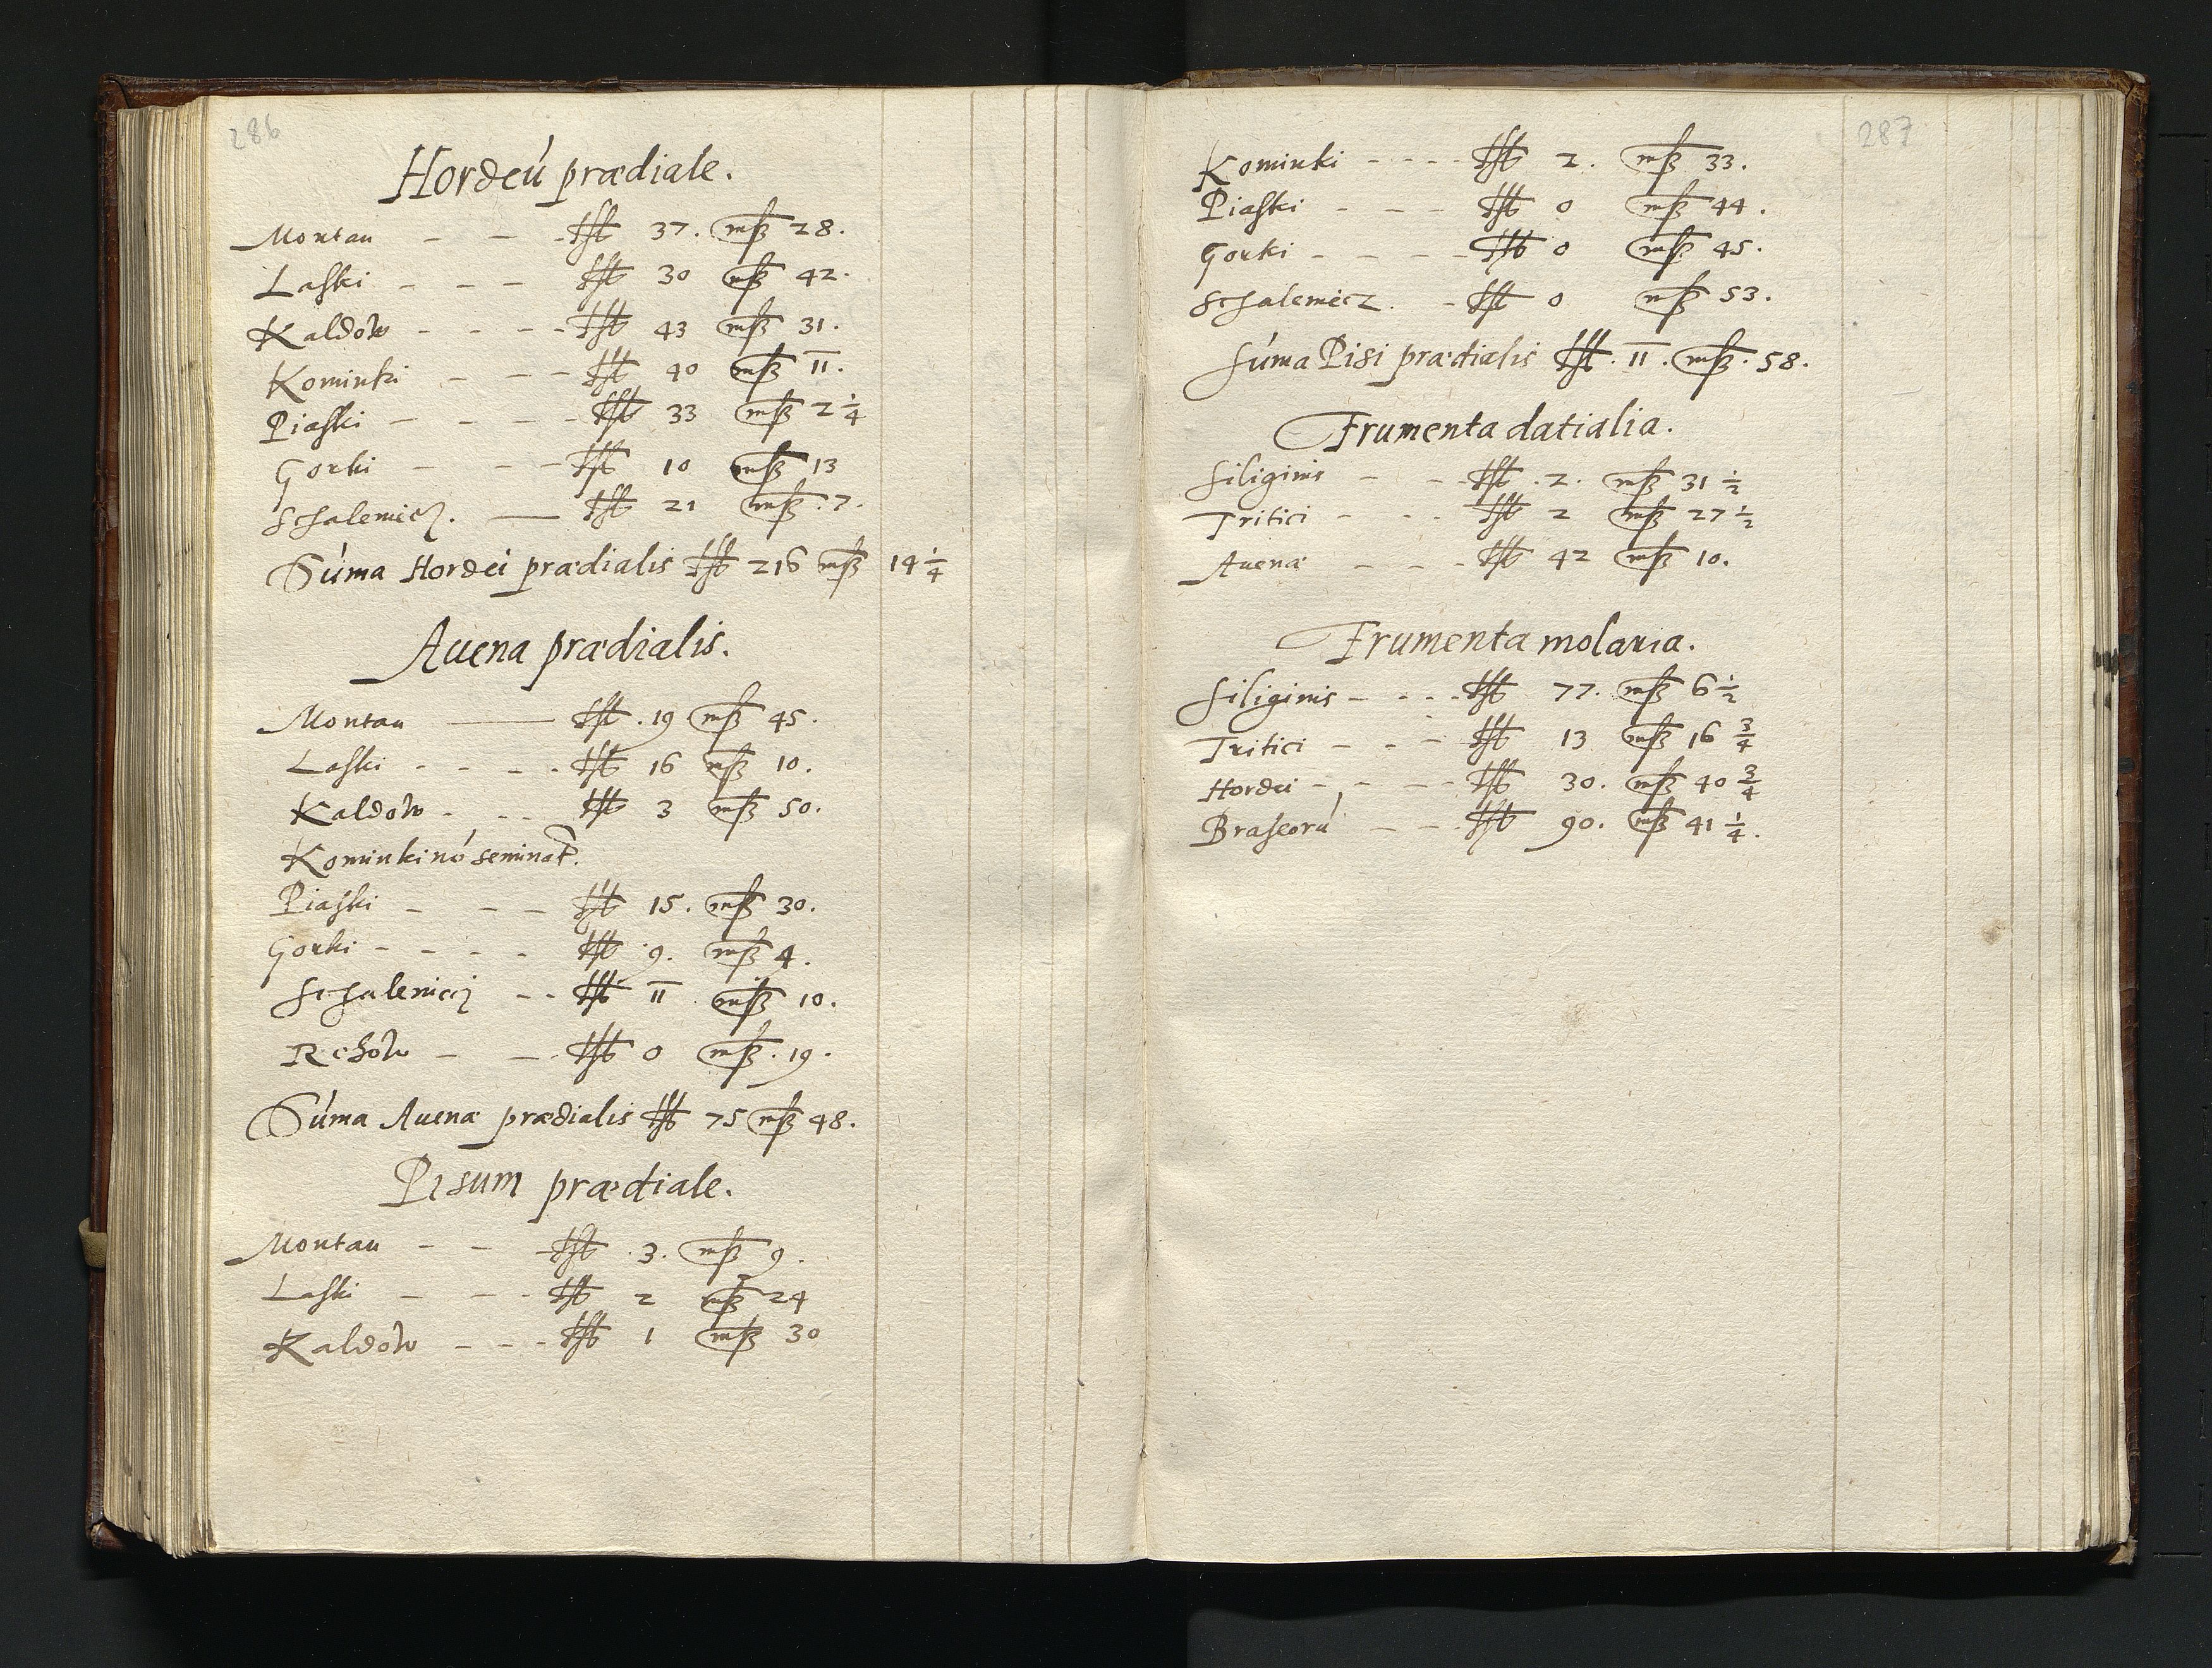 286
Hordeú prædiale.
Montau - - - łſt 37. mß 28.
Laſki - - - łſt 30 mß 42.
Kaldow - - - - łſt 43 mß 31.
Kominki - - - łſt 40 mß 11.
Piaſki - - - - łſt 33 mß 2 1/4
Gorki - - - łſt 10 mß 13
Schalemicz. — łſt 21 mß. 7.
Súma Hordei prædialis łſt 216 mß 14 1/4
Auena prædialis.
Montau — łſt. 19 mß 45.
Laſki - - - - łſt 16 mß 10.
Kaldow - - - łſt 3 mß 50.
Kominki nó seminat̃.
Piaſki - - - łſt 15. mß 30.
Gorki - - - - łſt 9. mß 4.
Schalemicz - - łſt 11 mß 10.
Rehow - - łſt 0 mß. 19.
Súma Auenæ prædialis łſt 75 mß 48.
Pisum prædiale.
Montau - - - łſt. 3. mß 9.
Laſki - - - łſt 2 mß 24
Kaldow - - - łſt 1 mß 30
287
Kominki - - - - łſt 2. mß 33.
Piaſki - - - łſt 0 mß 44.
Gorki - - - - łſt 0 mß 45.
Schalemicz. - łſt 0 mß 53.
Súma Pisi prædialis łſt. 11. mß. 58.
Frumenta datialia.
Siliginis - - - łſt. 2. mß 31 1/2
Tritici - - - łſt 2 mß 27 1/2
Auenæ - - - łſt 42 mß 10.
Frumenta molaria.
Siliginis - - - - łſt 77. mß 6 1/2
Tritici - - - łſt 13 mß 16 3/4
Hordei - - - - łſt 30. mß 40 3/4
Braſeorú - - - łſt 90. mß 41 1/4.